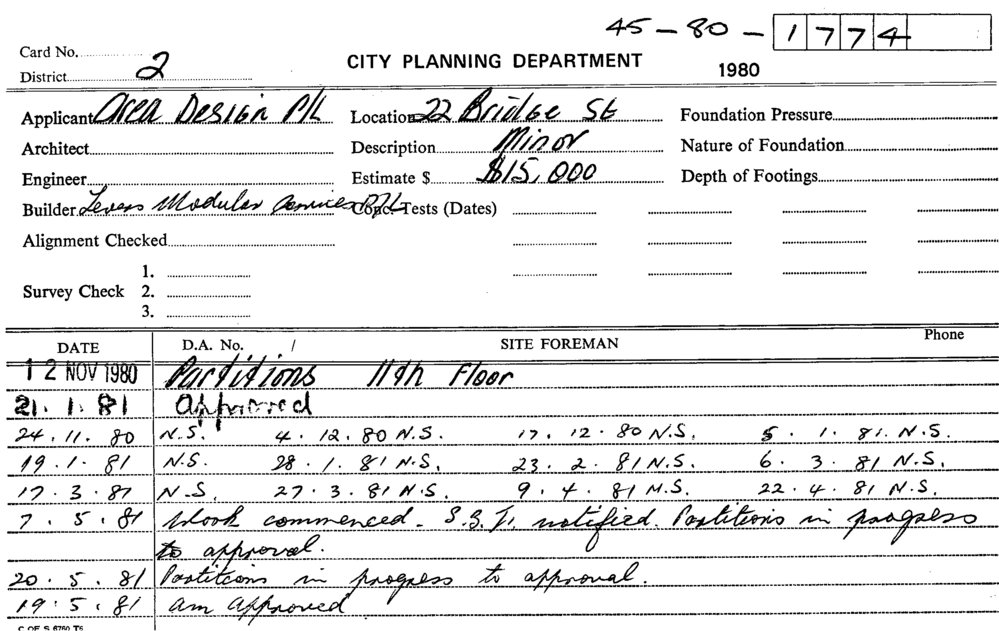 45 - 80 - 1774
Card No.
District 2
CITY PLANNING DEPARTMENT
1980
Applicant Area Design P/L Location 22 Bridge St Foundation Pressure
Architect Description Minor Nature of Foundation
Engineer Estimate $ $15,000 Depth of Footings
Builder Levers Modular Services P/L Conc. Tests (Dates)
Alignment Checked
1.
Survey Check 2.
3.
DATE D.A. No. / SITE FOREMAN Phone
12 NOV 1980 Partitions 11th Floor
21.1.81 Approved
24.11.80 N.S. 4.12.80 N.S. 17.12.80 N.S. 5.1.81. N.S.
19.1.81 N.S. 28.1.81 N.S. 23.2.81 N.S. 6.3.81 N.S.
17.3.81 N.S. 27.3.81 N.S. 9.4.81 N.S. 22.4.81 N.S.
7.5.81 Work commenced. notified. Partitions in progress
to approval.
20.5.81 Partitions in progress to approval.
19.5.81 am Approved
C OF S 6760 T6